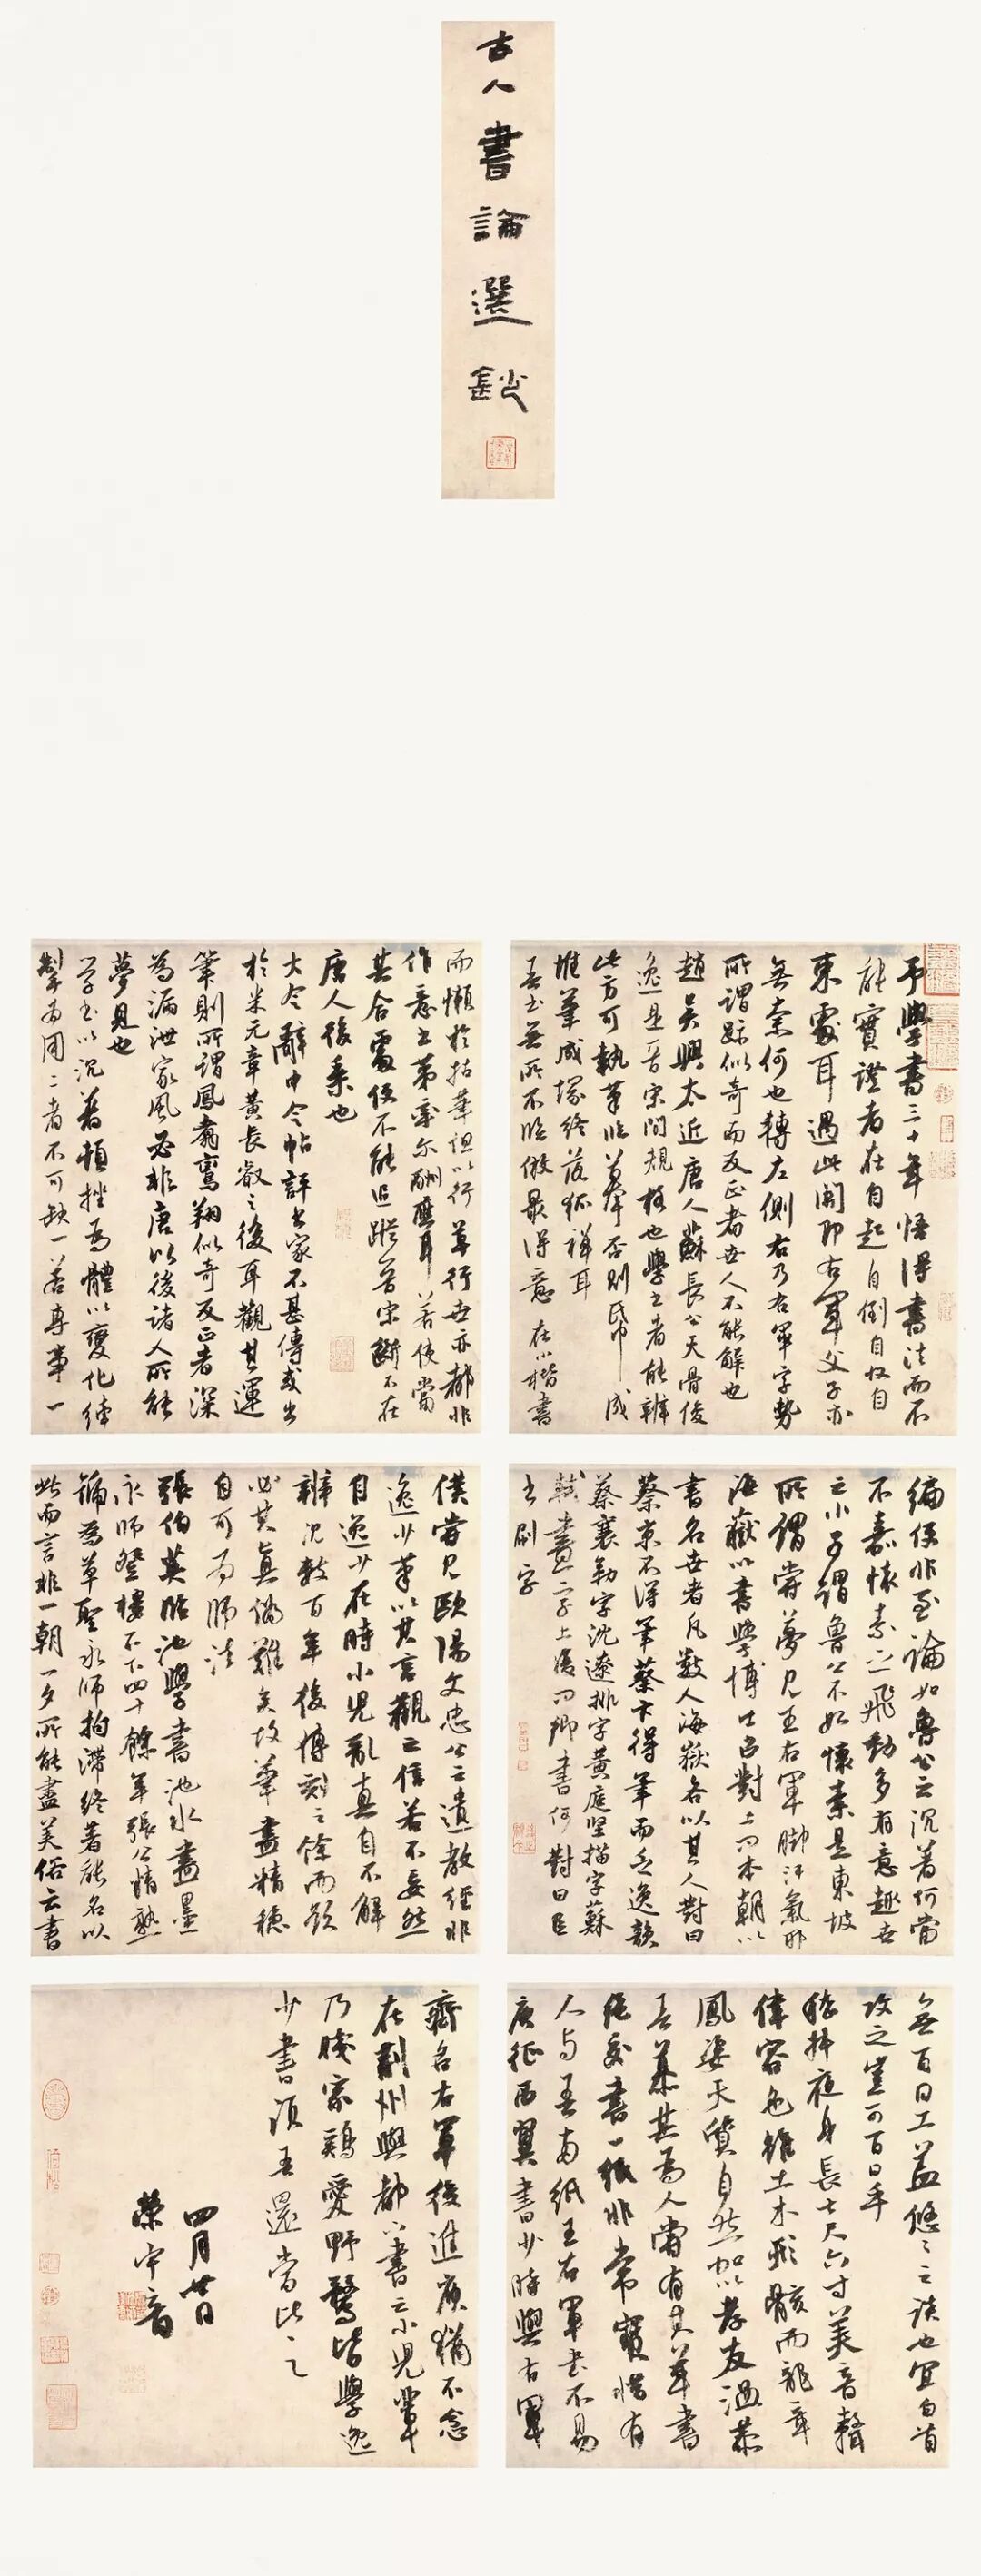 古人書論選鈔
予學書三十年悟得書法而不
能實證者在自起自倒自收自
束處耳過此關即右軍父子亦
無奈何也轉左側右乃右軍字勢
所謂跡似奇而反正者世人不能解也
趙吳興太近唐人蘇長公天骨俊
逸是晉宋間規格也學書者能辨
此方可執筆臨摹否則紙成
堆筆成塚終落狐禪耳
吾書無所不臨倣最得意在小楷書
而懶於拈筆但以行草行世亦都非
作意書第率尔酬應耳若使當
其合處便不能追蹤晉宋斷不在
唐人後乘也
大令辭中令帖評書家不甚傳或出
於米元章黃長睿之後耳觀其運
筆則所謂鳳翥鸞翔似奇反正者深
為漏泄家風必非唐以後諸人所能
夢見也
學書以沉着頓挫為體以變化牽
掣為用二者不可缺一若專事一
偏便非至論如魯公之沉着何嘗
不嘉懷素之飛動多有意趣世
之小子謂魯公不如懷素是東坡
所謂嘗夢見王右軍脚汗氣耶
海嶽以書學博士召對上問本朝以
書名世者凡數人海嶽各以其人對曰
蔡京不得筆蔡卞得筆而乏逸韻
蔡襄勒字沈遼排字黃庭堅描字蘇
軾畫字上復問卿書何對曰臣
書刷字
僕嘗見歐陽文忠公云遺教經非
逸少筆以其言觀之信若不妄然
自逸少在時小兒亂真自不解
辨況數百年後傳刻之餘而欲
必其真偽難矣故筆畫精穩
自可為師法
張伯英臨池學書池水盡墨
永師登樓不下四十餘年張公精熟
號為草聖永師拘滯終著能名以
此而言非一朝一夕所能盡美俗云書
無百日工蓋悠悠之談也宜白首
攻之豈可百日乎
嵇叔夜身長七尺六寸美音聲
偉容色雖土木形骸而龍章
鳳姿天質自然加以孝友溫恭
吾慕其為人嘗有其草書
絕交書一紙非常寶惜有
人与吾兩紙王右軍書不易
庾征西翼書少時與右軍
齊名右軍後進庾猶不忿
在荊州與都下書云小兒輩
乃賤家雞愛野鶩皆學逸
少書須吾還當比之
四月廿日